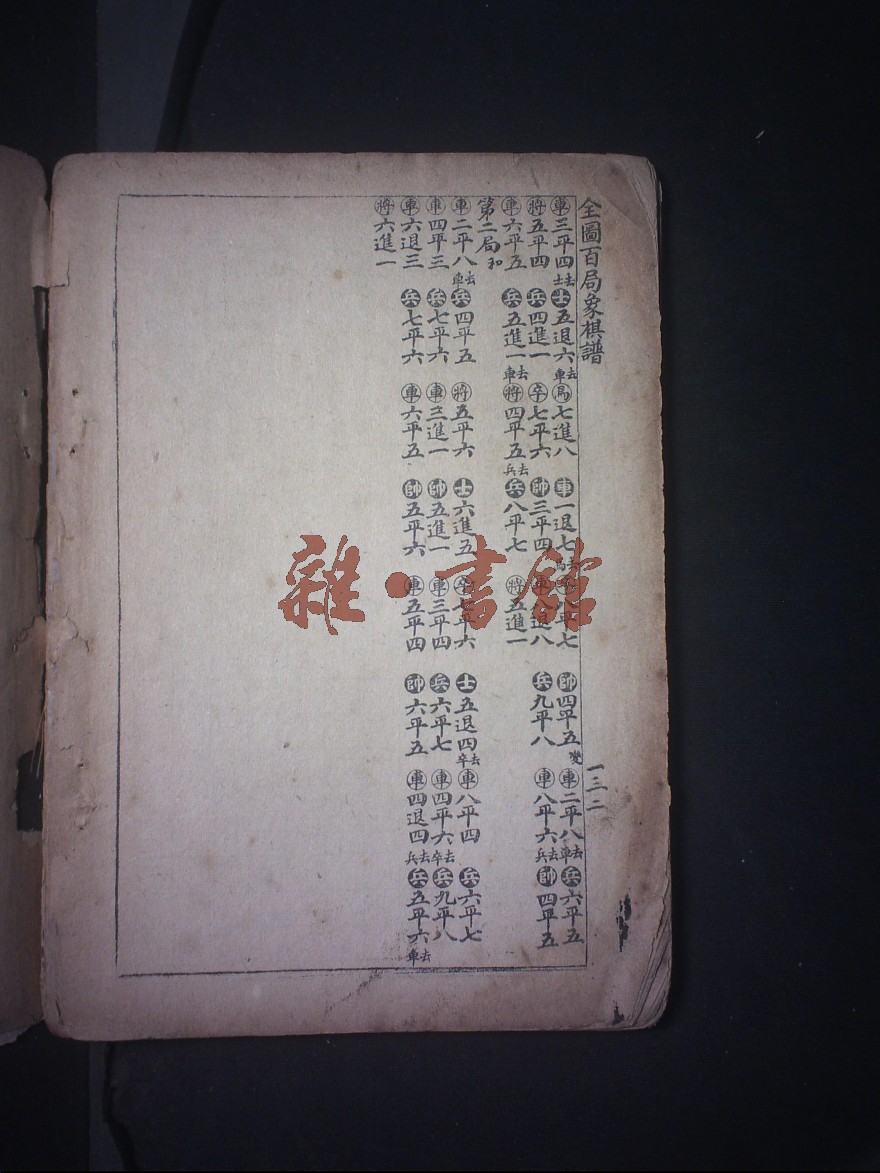 全圖百局象棋譜 一三二
車三平四去士 士五退六去車 馬七進八 車一退七去 平七 帥四平五變 車二平八去車 兵六平五
將五平四 兵四進一 卒七平六 帥三平四 車退八 兵九平八 車八平六去兵 帥四平五
車六平五 兵五進一去車 將四平五去兵 兵八平七 將五進一
第二局和
車二平八去車 兵四平五 將五平六 士六進五 卒七平六 士五退四去卒 車八平四 兵六平七
車四平三 兵七平六 車三進一 帥五進一 車三平四 兵六平七 車四平六去卒 兵九平八
車六退三 兵七平六 車六平五 帥五平六 車五平四 帥六平五 車四退四去兵 兵五平六去車
將六進一
雜·書館